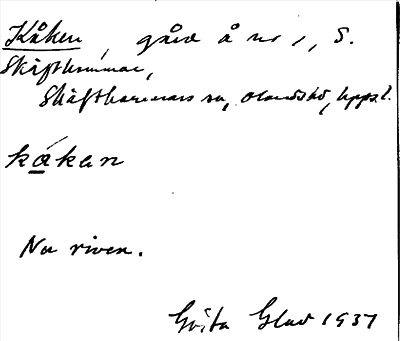 Kåken, gård å nr 1, S.
Skäfthammar,
Skäfthammars sn, Olandshd, Uppsl.
kåkan
Nu riven.
Gösta Glad 1937